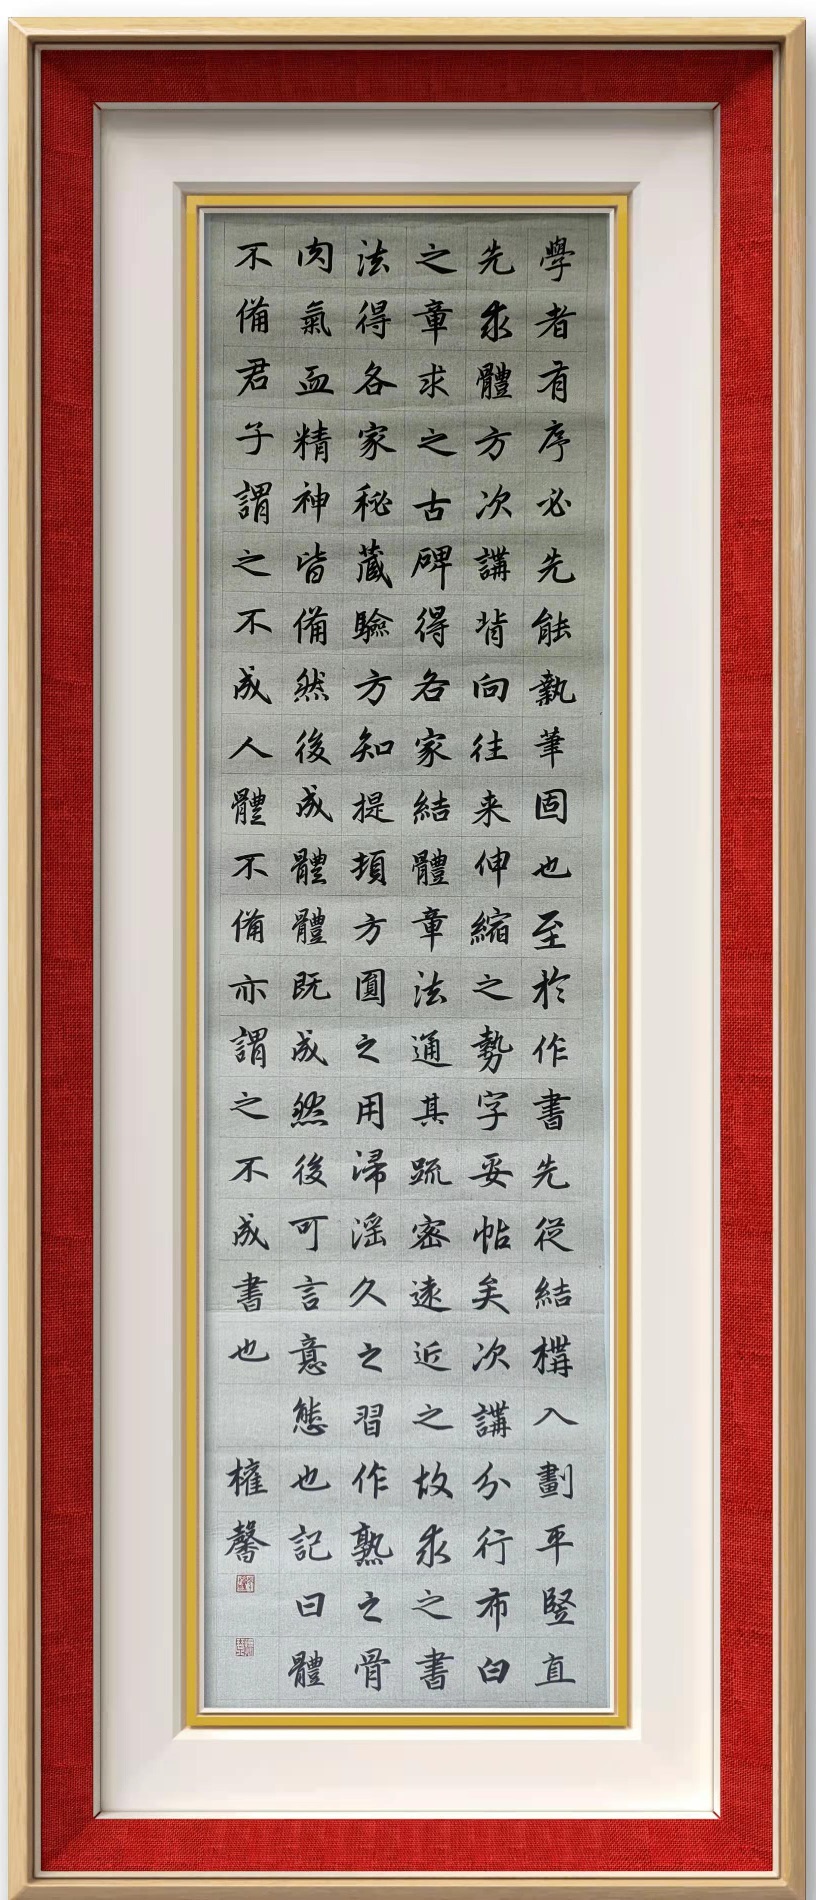 學者有序必先能執筆固也至於作書先從結構入劃平竪直
先求體方次講背向往来伸縮之勢字妥帖矣次講分行布白
之章求之古碑得各家結體章法通其疏密遠近之故求之書
法得各家秘蔵驗方知提頓方圓之用浸淫久之習作熟之骨
肉氣血精神皆備然後成體體既成然後可言意態也記曰體
不備君子謂之不成人體不備亦謂之不成書也
權馨